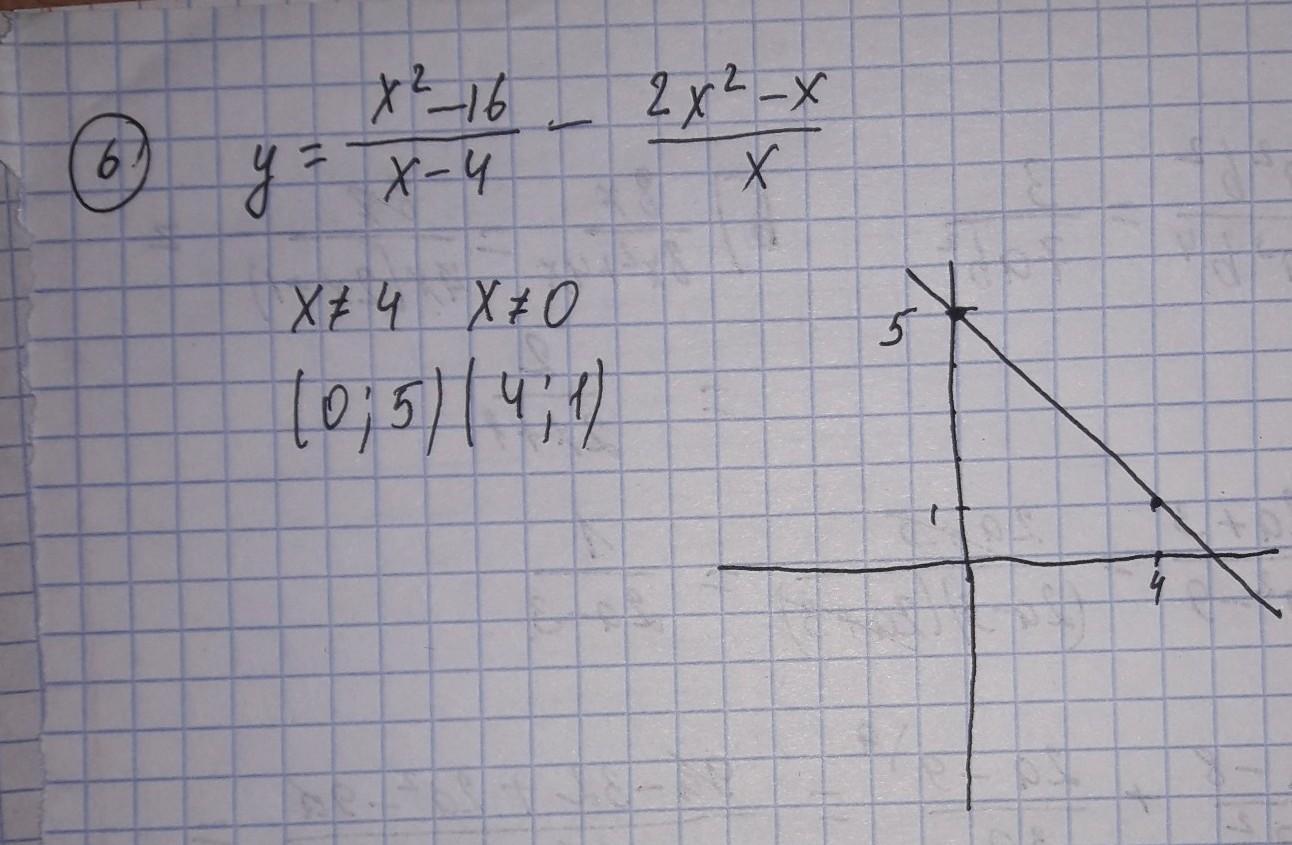 6) y = (x² - 16)/(x - 4) - (2x² - x)/x
x ≠ 4 x ≠ 0
(0; 5) (4; 1)
5
1
4